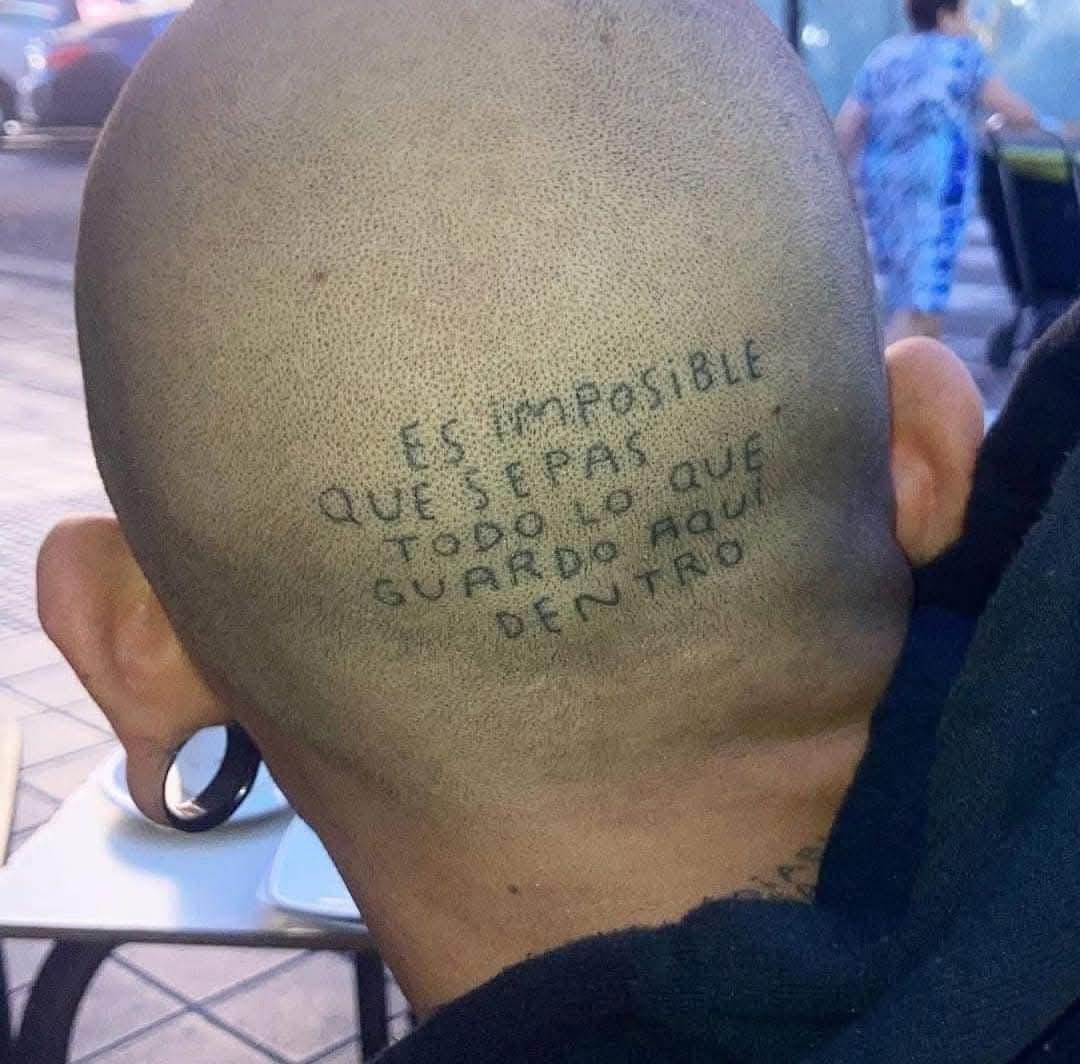 ES iMPOSiBLE
QUE SEPAS
TODO LO QUE
GUARDO AQUÍ
DENTRO